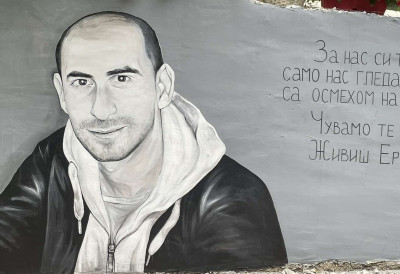 За нас си т
само нас гледа
са осмехом на
Чувамо те
Живиш Ер